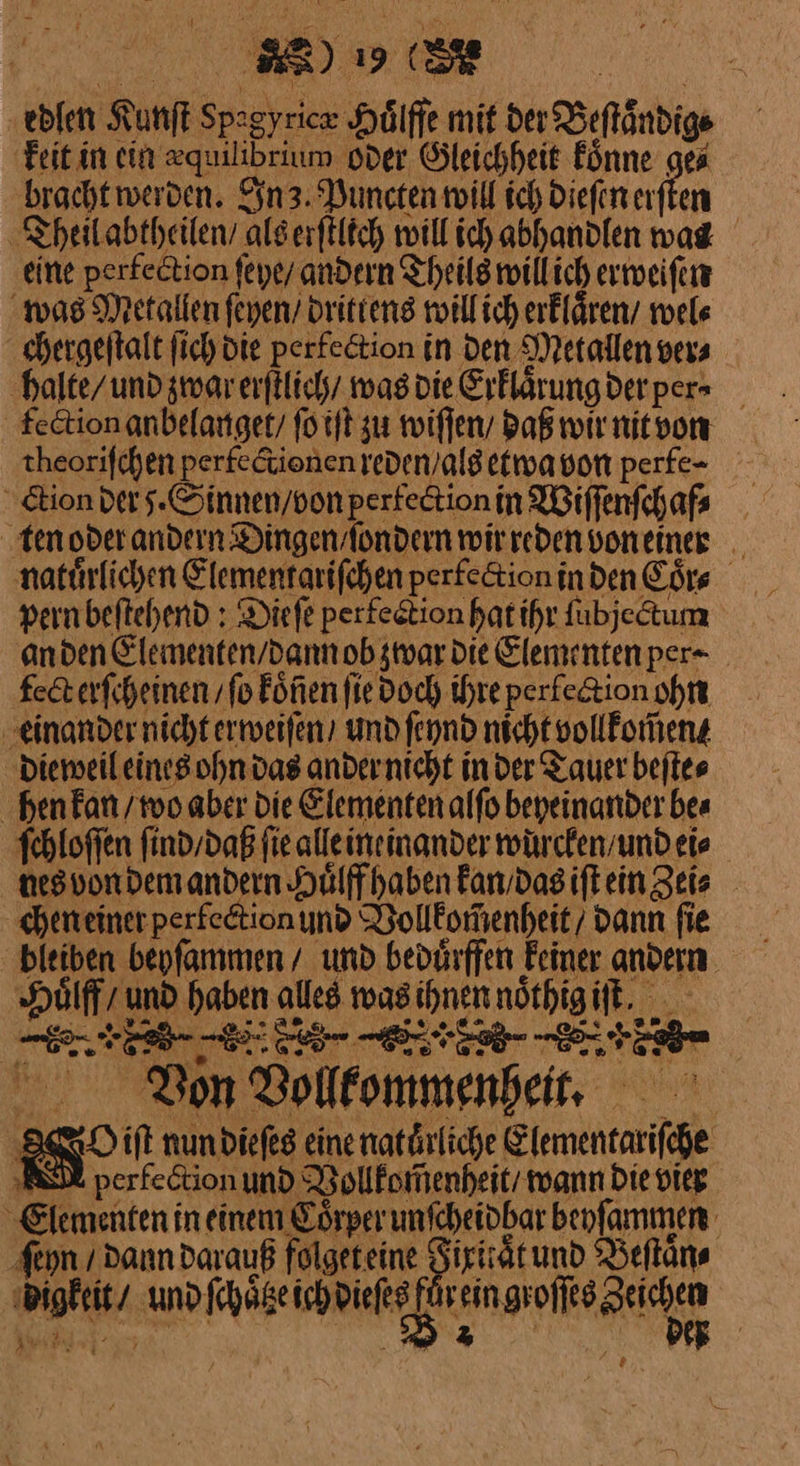 ) 19 (
edlen Kunſt Spagyricæ Huͤlffe mit der Beſtaͤndig⸗
keit in ein æquilibrium oder Gleichheit koͤnne ge⸗
bracht werden. In 3. Puncten will ich dieſen erſten
Theil abtheilen/ als erſtlich will ich abhandlen was
eine perfection ſeye/ andern Theils will ich erweiſen
was Metallen ſeyen/ drittens will ich erklaͤren/ wel⸗
chergeſtalt ſich die perfection in den Metallen ver⸗
halte/ und zwar erſtlich/ was die Erklaͤrung der per-
fection anbelanget/ ſo iſt zu wiſſen/ daß wir nit von
theoriſchen perfectionen reden/ als etwa von perfe-
ction der 5. Sinnen/ von perfection in Wiſſenſchaf⸗
ten oder andern Dingen/ ſondern wir reden von einer
natuͤrlichen Elementariſchen perfection in den Coͤr⸗
pern beſtehend : Dieſe perfection hat ihr ſubjectum
an den Elementen/ dann ob zwar die Elementen per-
fect erſcheinen / ſo koͤñen ſie doch ihre perfection ohn
einander nicht erweiſen/ und ſeynd nicht vollkom̃en/
dieweil eines ohn das ander nicht in der Tauer beſte⸗
hen kan / wo aber die Elementen alſo beyeinander be⸗
ſchloſſen ſind/ daß ſie alle ineinander wuͤrcken/ und ei⸗
nes von dem andern Huͤlff haben kan/ das iſt ein Zei⸗
chen einer perfection und Vollkom̃enheit / dann ſie
bleiben beyſammen / und beduͤrffen keiner andern
Huͤlff / und haben alles was ihnen noͤthig iſt.
Von Vollkommenheit.
SO iſt nun dieſes eine natuͤrliche Elementariſche
perfection und Vollkom̃enheit/ wann die vier
Elementen in einem Coͤrper unſcheidbar beyſammen
ſeyn / dann darauß folget eine Fixitaͤt und Beſtaͤn⸗
digkeit / und ſchaͤtze ich dieſes fuͤr ein groſſes Zeichen
B 2 der